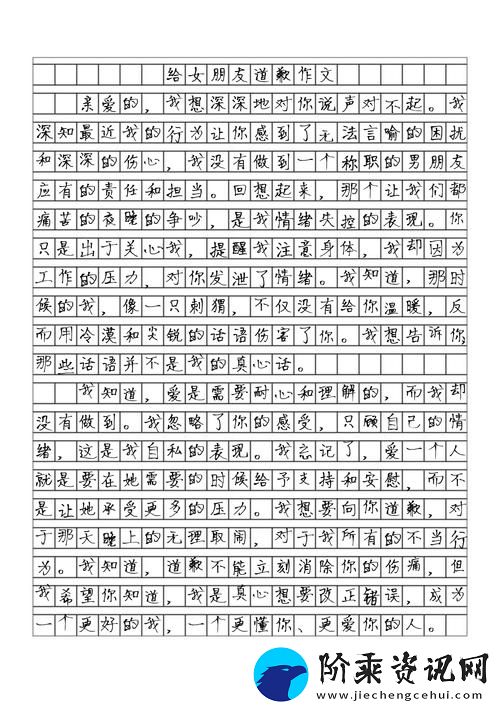 给女朋友道歉作文
亲爱的，我想深深地对你说声对不起。我
深知最近我的行为让你感到了无法言喻的困扰
和深深的伤心，我没有做到一个称职的男朋友
应有的责任和担当。回想起来，那个让我们都
痛苦的夜晚的争吵，是我情绪失控的表现。你
只是出于关心我，提醒我注意身体，我却因为
工作的压力，对你发泄了情绪。我知道，那时
候的我，像一只刺猬，不仅没有给你温暖，反
而用冷漠和尖锐的话语伤害了你。我想告诉你，
那些话语并不是我的真心话。
我知道，爱是需要耐心和理解的，而我却
没有做到。我忽略了你的感受，只顾自己的情
绪，这是我自私的表现。我忘记了，爱一个人
就是要在她需要的时候给予支持和安慰，而不
是让她承受更多的压力。我想要向你道歉，对
于那天晚上的无理取闹，对于我所有的不当行
为。我知道，道歉不能立刻消除你的伤痛，但
我希望你知道，我是真心想要改正错误，成为
一个更好的我，一个更懂你、更爱你的人。
阶乘资讯网
www.jiechengcehui.com